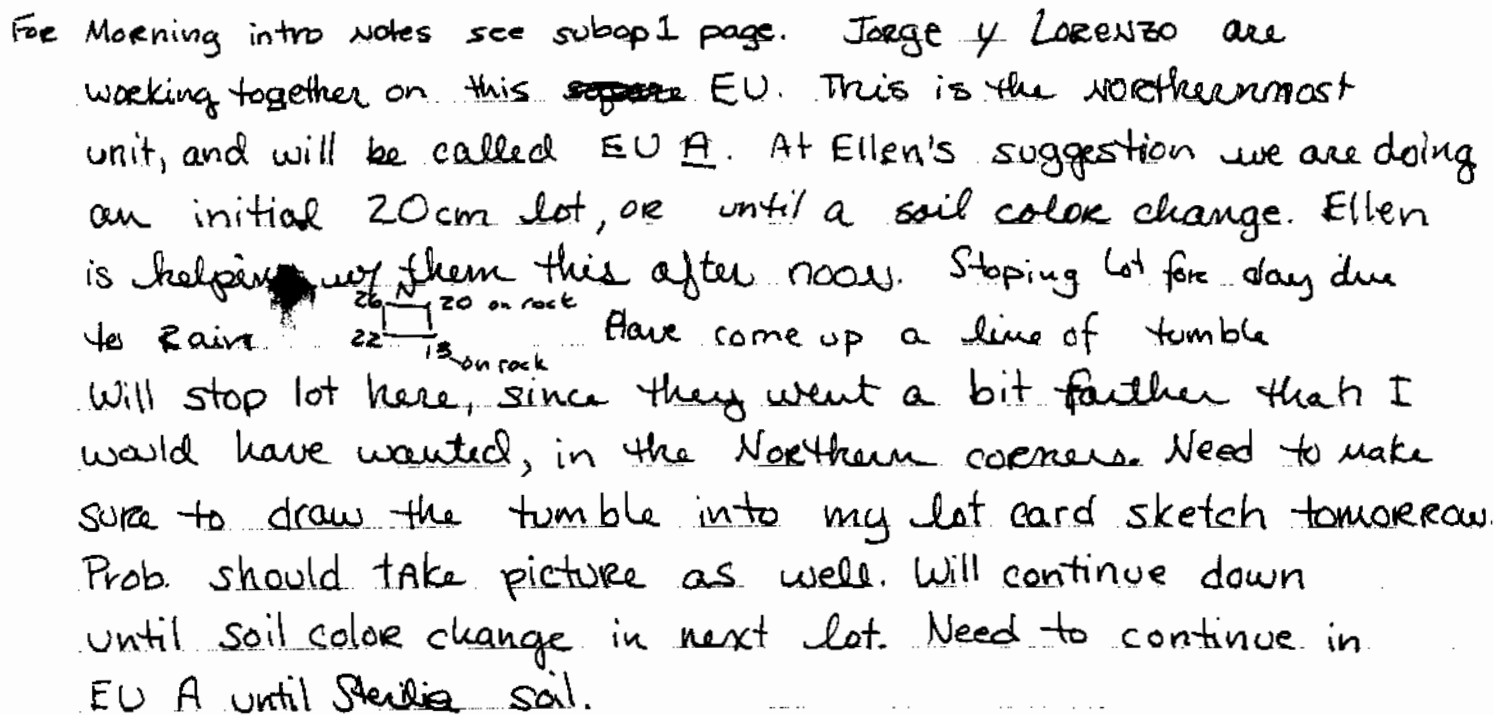 For Morning intro notes see subop1 page. Jorge y Lorenzo are
working together on this square EU. This is the northernmost
unit, and will be called EU A. At Ellen's suggestion we are doing
an initial 20cm lot, or until a soil color change. Ellen
is helping w/ them this after noon. Stoping lot for day due
to Rain. Have come up a line of tumble
26 N 20 on rock
22 18 on rock
Will stop lot here, since they went a bit farther than I
would have wanted, in the Northern corners. Need to make
sure to draw the tumble into my lot card sketch tomorrow.
Prob. should take picture as well. Will continue down
until soil color change in next lot. Need to continue in
EU A until Sterile soil.